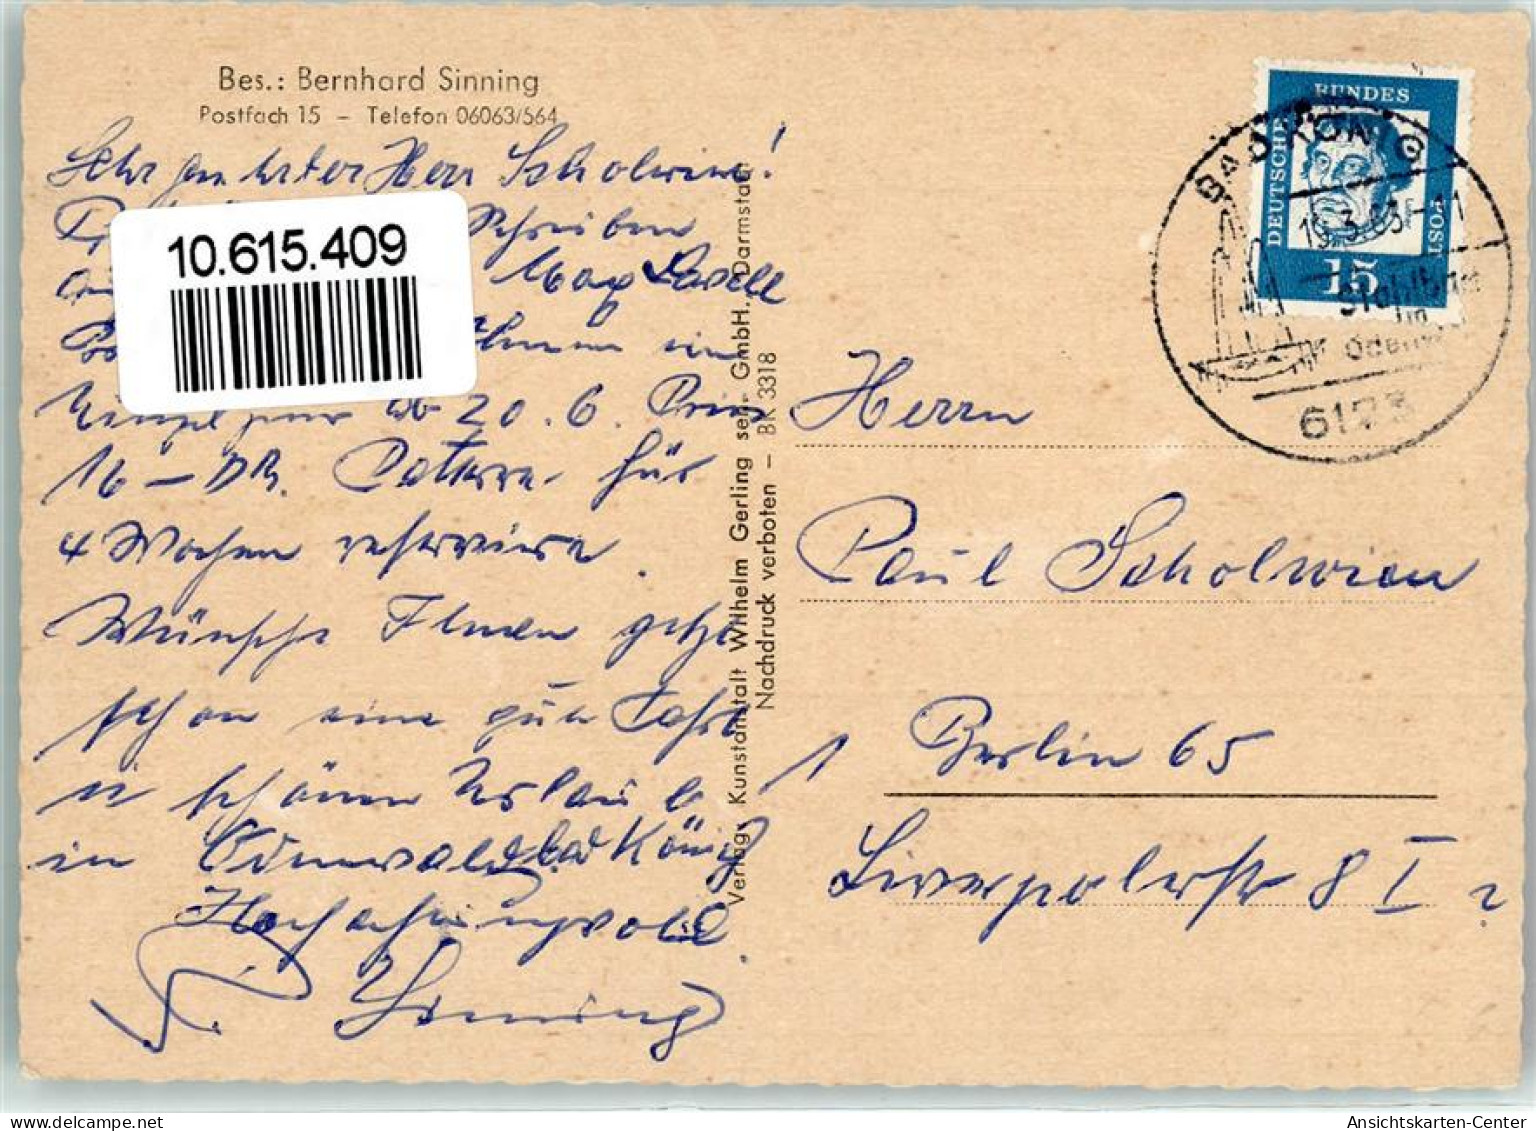 Bes.: Bernhard Sinning
Postfach 15 – Telefon 06063/564
Sehr geehrter Herr Scholwien!
Schreiben
10.615.409
Max
Ihnen ein
ab 20. 6. Preis
16 – DM. für
4 Wochen reservieren.
Wünsche Ihnen
schon eine gute Fahrt
u schönen Urlaub
in Odenwald Bad König
Hochachtungsvoll
B. Sinning
Verlag: Kunstanstalt Wilhelm Gerling sen. GmbH., Darmstadt
Nachdruck verboten – BK 3318
DEUTSCHE
BUNDES
POST
15
BAD KÖNIG
19.3.63
Stahlbad
im
Odenwald
6123
Herrn
Paul Scholwien
1 Berlin 65
Liverpolerstr 8 I
Ansichtskarten-Center